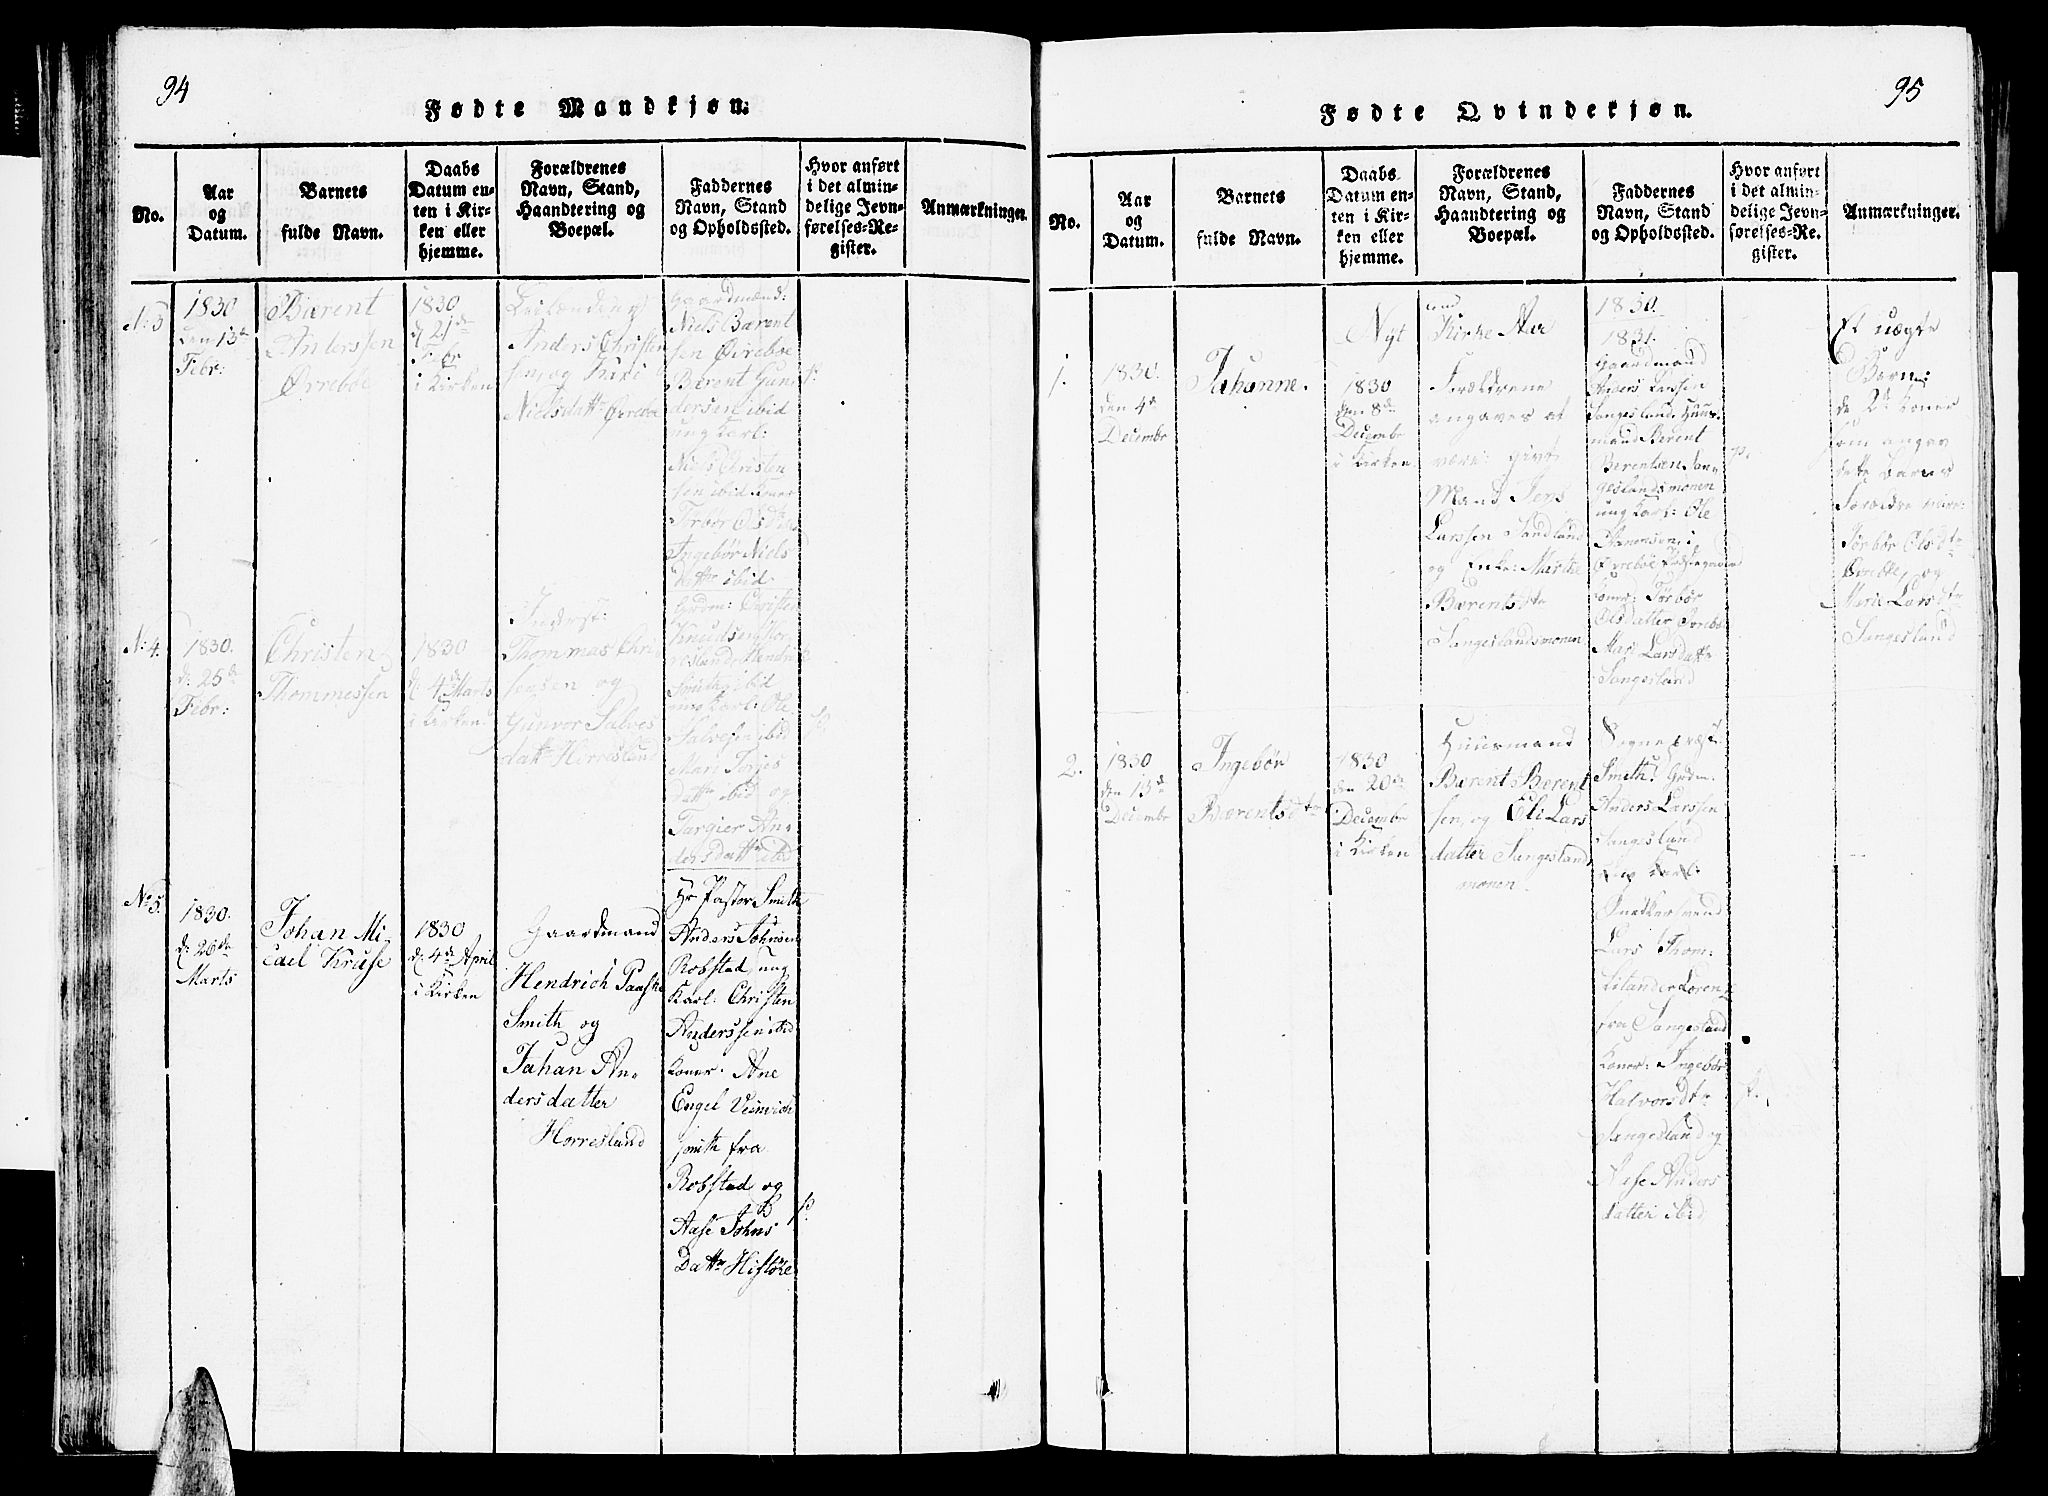 94
Fødte Mandkjøn.
No.
Aar
og
Datum.
Barnets
fulde Navn.
Daabs
Datum en-
ten i Kir-
ken eller
hjemme.
Forældrenes
Navn, Stand,
Haandtering og
Boepæl.
Faddernes
Navn, Stand
og Opholdssted.
Hvor anført
i det almin-
delige Jevn-
førelses-Re-
gister.
Anmærkninger.
N: 3
1830
den 13de
Febr:
Bærent
Anderssen
Øvreboe
1830
d 21de
Febr
i Kirken
Anders Christen
sen, og Kari
Nielsdattr Øvreboe
Gaardmænd:
Niels Bærent
sen Øvreboe
Bærent Gun
dersen ibid
ung Karl:
Niels Christen
sen ibid Koner
Torbør Olsdtr
Ingebør Niels
Dattr ibid.
p.
N: 4.
1830.
d: 25de
Febr:
Christen
Thommessen
1830
d: 4de Marts
i Kirken
Inderst:
Thommas Chri
stensen og
Gunvor Salves
dattr Horresland
Grdm: Christen
Knudsen Hor
resland, Hendrik
Smith, ibid
ung Karl: Ole
Salvesen ibid
Mari Torjes
Dattr ibid og
Targier An-
dersdattr ibid
p.
No 5.
1830.
d: 26de
Marts
Johan Mi-
cael Kruse
1830
d: 4de April
i Kirken
Gaardmand
Hendrich Paaske
Smith og
Johan An-
dersdatter
Horresland
Hr Pastor Smith
Anders Johnsen
Robstad, ung
Karl: Christen
Anderssen ibid
Koner. Ane
Engel Veinvich
smith fra
Robstad og
Aase Johns
Dattr Histøle
p.
95
Fødte Qvindekjøn.
No.
Aar
og
Datum.
Barnets
fulde Navn.
Daabs
Datum en-
ten i Kir-
ken eller
hjemme.
Forældrenes
Navn, Stand,
Haandtering og
Boepæl.
Faddernes
Navn, Stand
og Opholdssted.
Hvor anført
i det almin-
delige Jevn-
førelses-Re-
gister.
Anmærkninger.
Nyt
Kirke Aar
1830.
1831.
1.
1830.
den 4de
Decembr
Johanne.
1830
den 8de
Decembr
i Kirken
Forældrene
angaves at
være: givt
Mand Jens
Larssen Sandland
og Enke: Marthe
Bærentsdtr
Sangeslandsmonen
Gaardmand
Anders Larssen
Sangesland, Huus-
mand Berent
Berentsen San-
geslandsmonen
ung Karl: Ole
i
Øvreboe Præstegaard
Koner: Torbør
Olsdatter Øvrebø
Mari Larsdattr
Sangesland
p.
Et uægte
Barn:
de 2de Koner
som angav
dette Barns
Forældre vare:
Torbør Olsdtr
Øvreboe, og
Mari Larsdtr
Sangesland
2.
1830
den 13de
Decembr
Ingebør
Bærentsdtr
1830
den 20de
Decembr
i Kirken
Huusmand
Bærent Berent
sen, og Eli Lars
datter Sangeslands
monen.
Sognepræst
Smith: Grdm:
Anders Larssen
Sangesland
ung Karl:
Snedkersvend
Lars Thom-
fra Sangesland
Koner: Ingebør
Halvorsdtr
Sangesland og
Aase Anders
datter ibid
p.